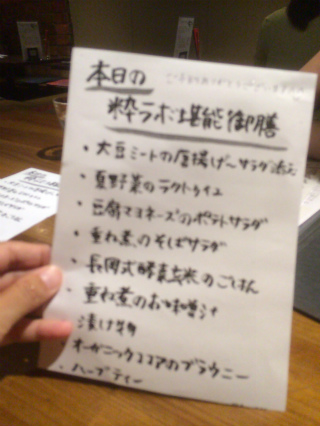 本日の
粋ラボ堪能御膳
・大豆ミートの唐揚げ〜サラダ添え
・夏野菜のラタトゥイユ
・豆腐マヨネーズのポテトサラダ
・重ね煮のそばサラダ
・長岡式酵素玄米のごはん
・重ね煮のお味噌汁
漬け物
オーガニックココアのブラウニー
・ハーブティー